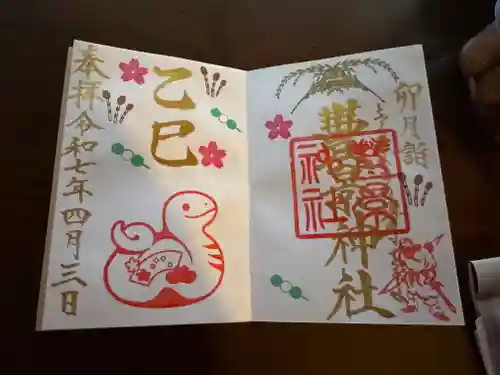 卯月詣
神社
神社
乙巳
奉拝 令和七年四月三日